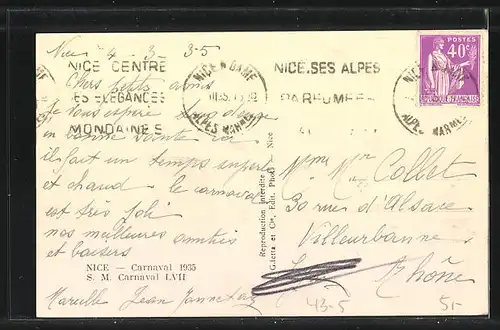 Nice 4-3-35
NICE CENTRE
DES ELEGANCES
MONDAINES
NICE.SES ALPES
PARFUMEES
NICE R DAME
ALPES MARMES
POSTES
40c
REPUBLIQUE FRANÇAISE
Chers petits amis
Je vous espère tous deux
en bonne santé ici
il fait un temps superbe
et chaud. le carnaval
est très joli
nos meilleures amitiés
et baisers
Marcelle Jean Jannet
NICE — Carnaval 1935
S. M. Carnaval LVII
Reproduction interdite
Giletta et Cie, Edit. Phot. Nice
Mme Mr Collet
30 rue d'Alsace
Villeurbanne
Rhône
43-5
51-